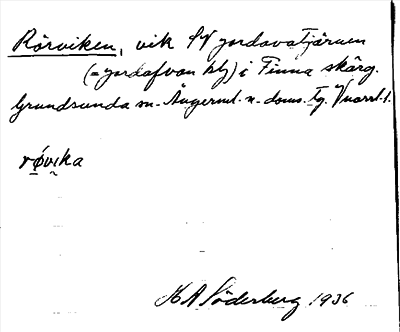 Rörviken, vik SV jordavatjärnen
(= jordafvan kbg) i Finna skärg.
Grundsunda sn. Ångerml. n. doms. tg. Vnorrl. l.
rø̱vi̮ka
H A Söderberg 1936